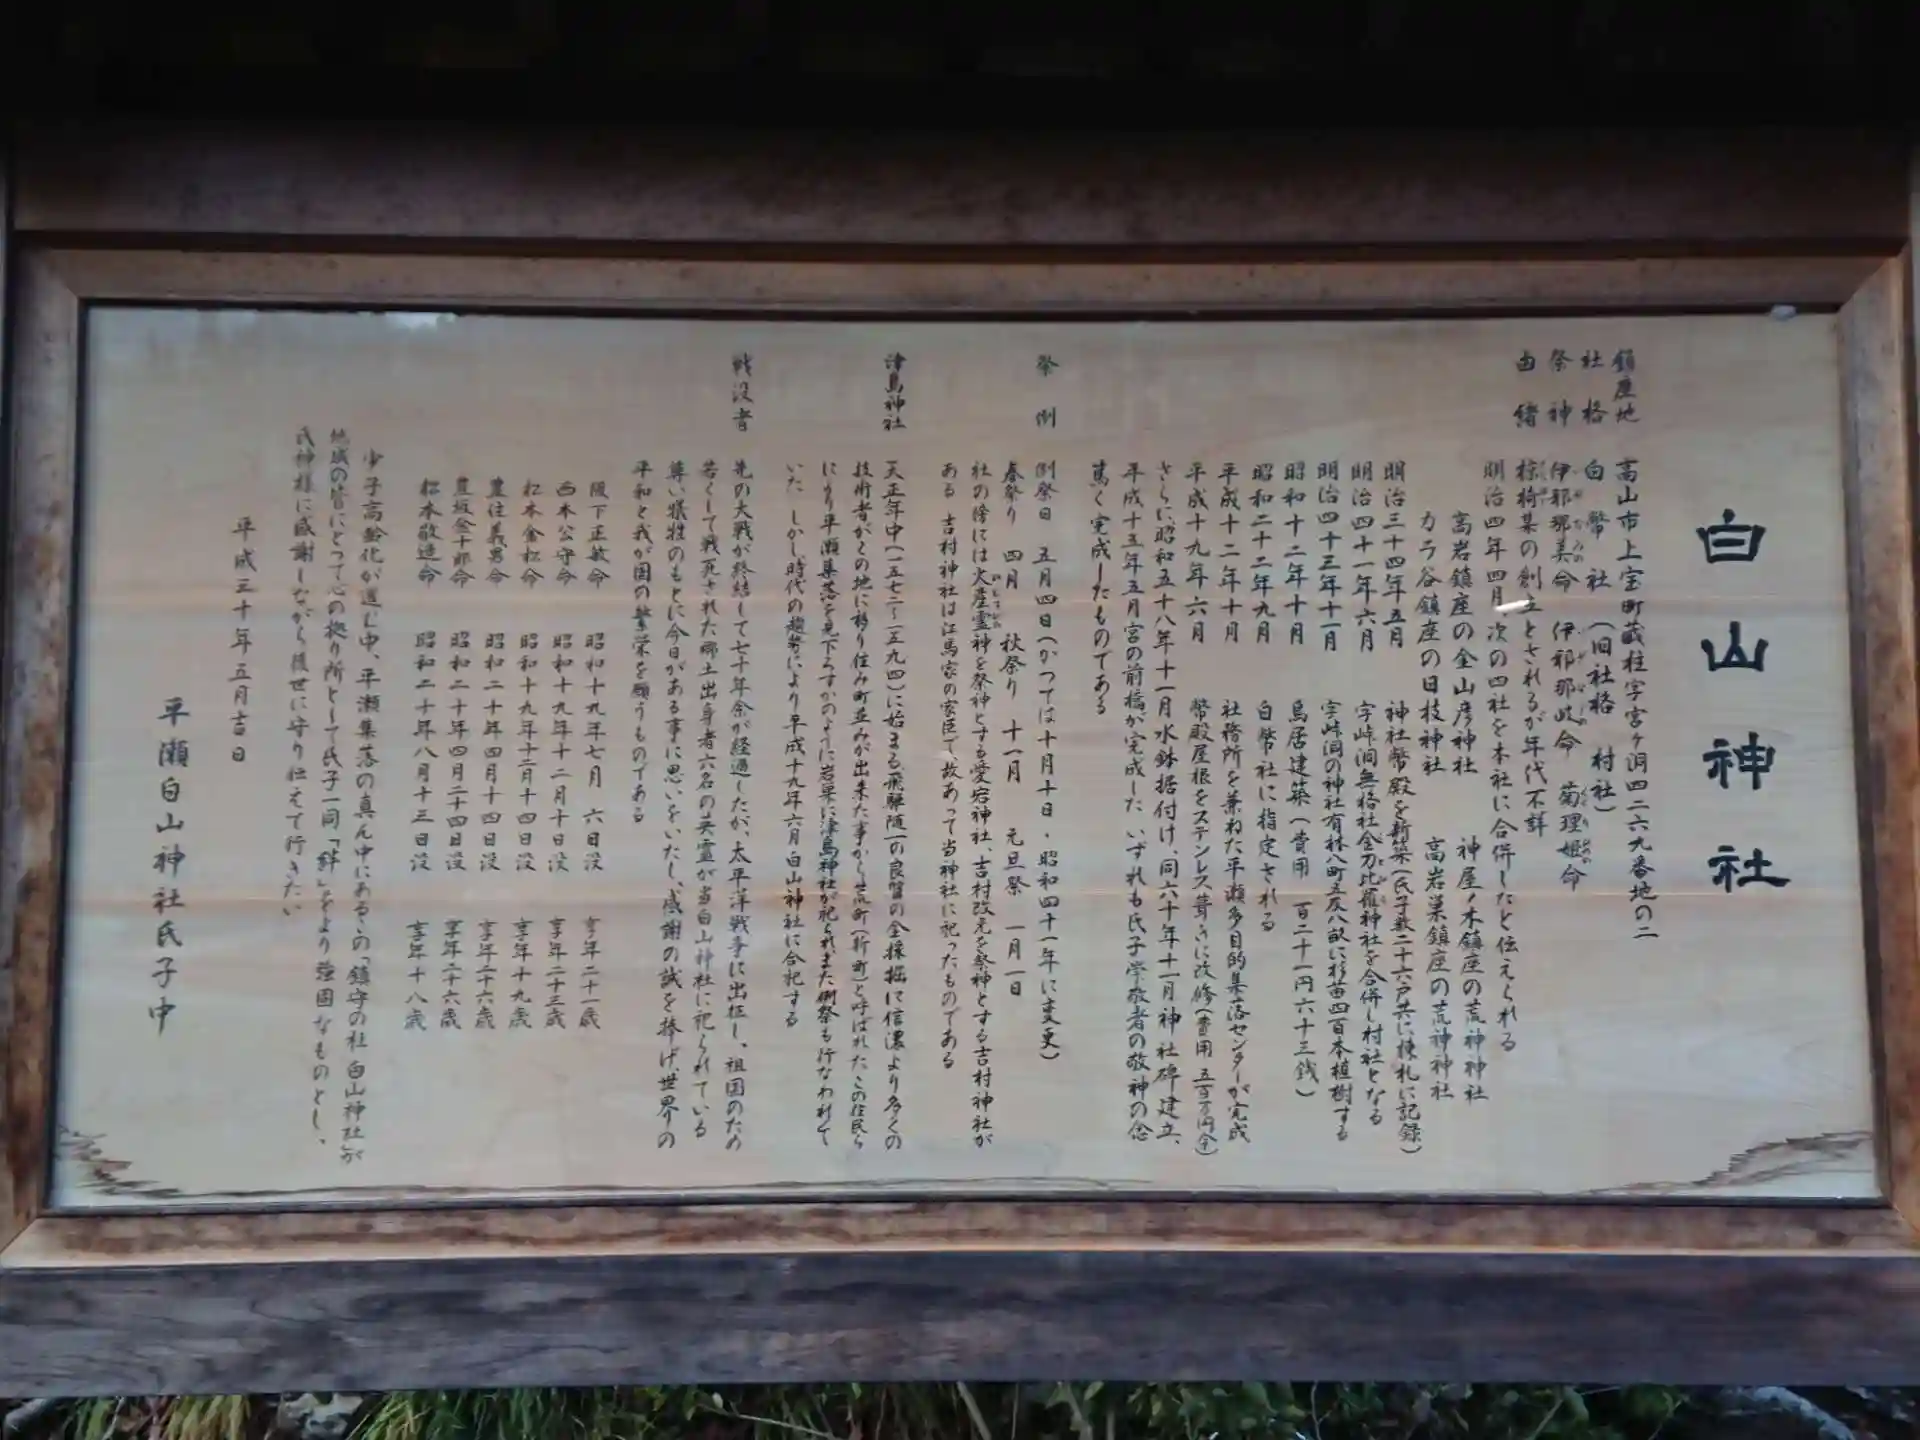 白山神社
鎮座地 高山市上宝町蔵柱字宮ヶ洞四二六九番地の二
社格 白幣社（旧社格 村社）
祭神 伊邪那美命 伊邪那岐命 菊理姫命
由緒 椋椅某の創立とされるが年代不詳
明治四年四月次の四社を本社に合併したと伝えられる
高岩鎮座の金山彦神社 神屋ノ木鎮座の荒神神社
カラ谷鎮座の日枝神社 高岩巣鎮座の荒神神社
明治三十四年五月 神社幣殿を新築（氏子数二十六戸共に棟札に記録）
明治四十一年六月 字峠洞無格社金刀比羅神社を合併し村社となる
明治四十三年十一月 字峠洞の神社有林八町五反八畝に杉苗四百本植樹する
昭和十二年十月 鳥居建築（費用 百二十一円六十三銭）
昭和二十二年九月 白幣社に指定される
平成十二年十月 社務所を兼ねた平瀬多目的集落センターが完成
平成十九年六月 幣殿屋根をステンレス葺きに改修（費用 五百万円余）
さらに昭和五十八年十一月水鉢据付け、同六十年十一月神社碑建立、
平成十五年五月宮の前橋が完成した いずれも氏子崇敬者の敬神の念
篤く完成したものである
祭例 例祭日 五月四日（かつては十月十日・昭和四十一年に変更）
春祭り 四月 秋祭り 十一月 元旦祭 一月一日
社の傍には火産霊神を祭神とする愛宕神社、吉村改元を祭神とする吉村神社が
ある 吉村神社は江馬家の家臣で、故あって当神社に祀ったものである
津島神社 天正年中（一五七二～一五九四）に始まる飛騨随一の良質の金採掘に信濃より多くの
技術者がこの地に移り住み町並みが出来た事から荒町（新町）と呼ばれた この住民ら
により平瀬集落を見下ろすかのように岩巣に津島神社が祀られまた例祭も行なわれて
いた しかし、時代の趨勢により平成十九年六月白山神社に合祀する
戦没者 先の大戦が終結して七十年余が経過したが、太平洋戦争に出征し、祖国のため
若くして戦死された郷土出身者六名の英霊が当白山神社に祀られている
尊い犠牲のもとに今日がある事に思いをいたし、感謝の誠を捧げ、世界の
平和と我が国の繁栄を願うものである
阪下正敏命 昭和十九年七月 六日没 享年二十一歳
西本公守命 昭和十九年十二月十日没 享年二十三歳
松本金松命 昭和十九年十二月十四日没 享年十九歳
豊住義男命 昭和二十年四月十四日没 享年二十六歳
豊坂金十郎命 昭和二十年四月二十四日没 享年二十六歳
松本敬造命 昭和二十年八月十三日没 享年十八歳
少子高齢化が進む中、平瀬集落の真ん中にあるこの「鎮守の社 白山神社」が
地域の皆にとって心の拠り所として氏子一同「絆」をより強固なものとし、
氏神様に感謝しながら後世に守り伝えて行きたい
平成三十年五月吉日
平瀬白山神社氏子中